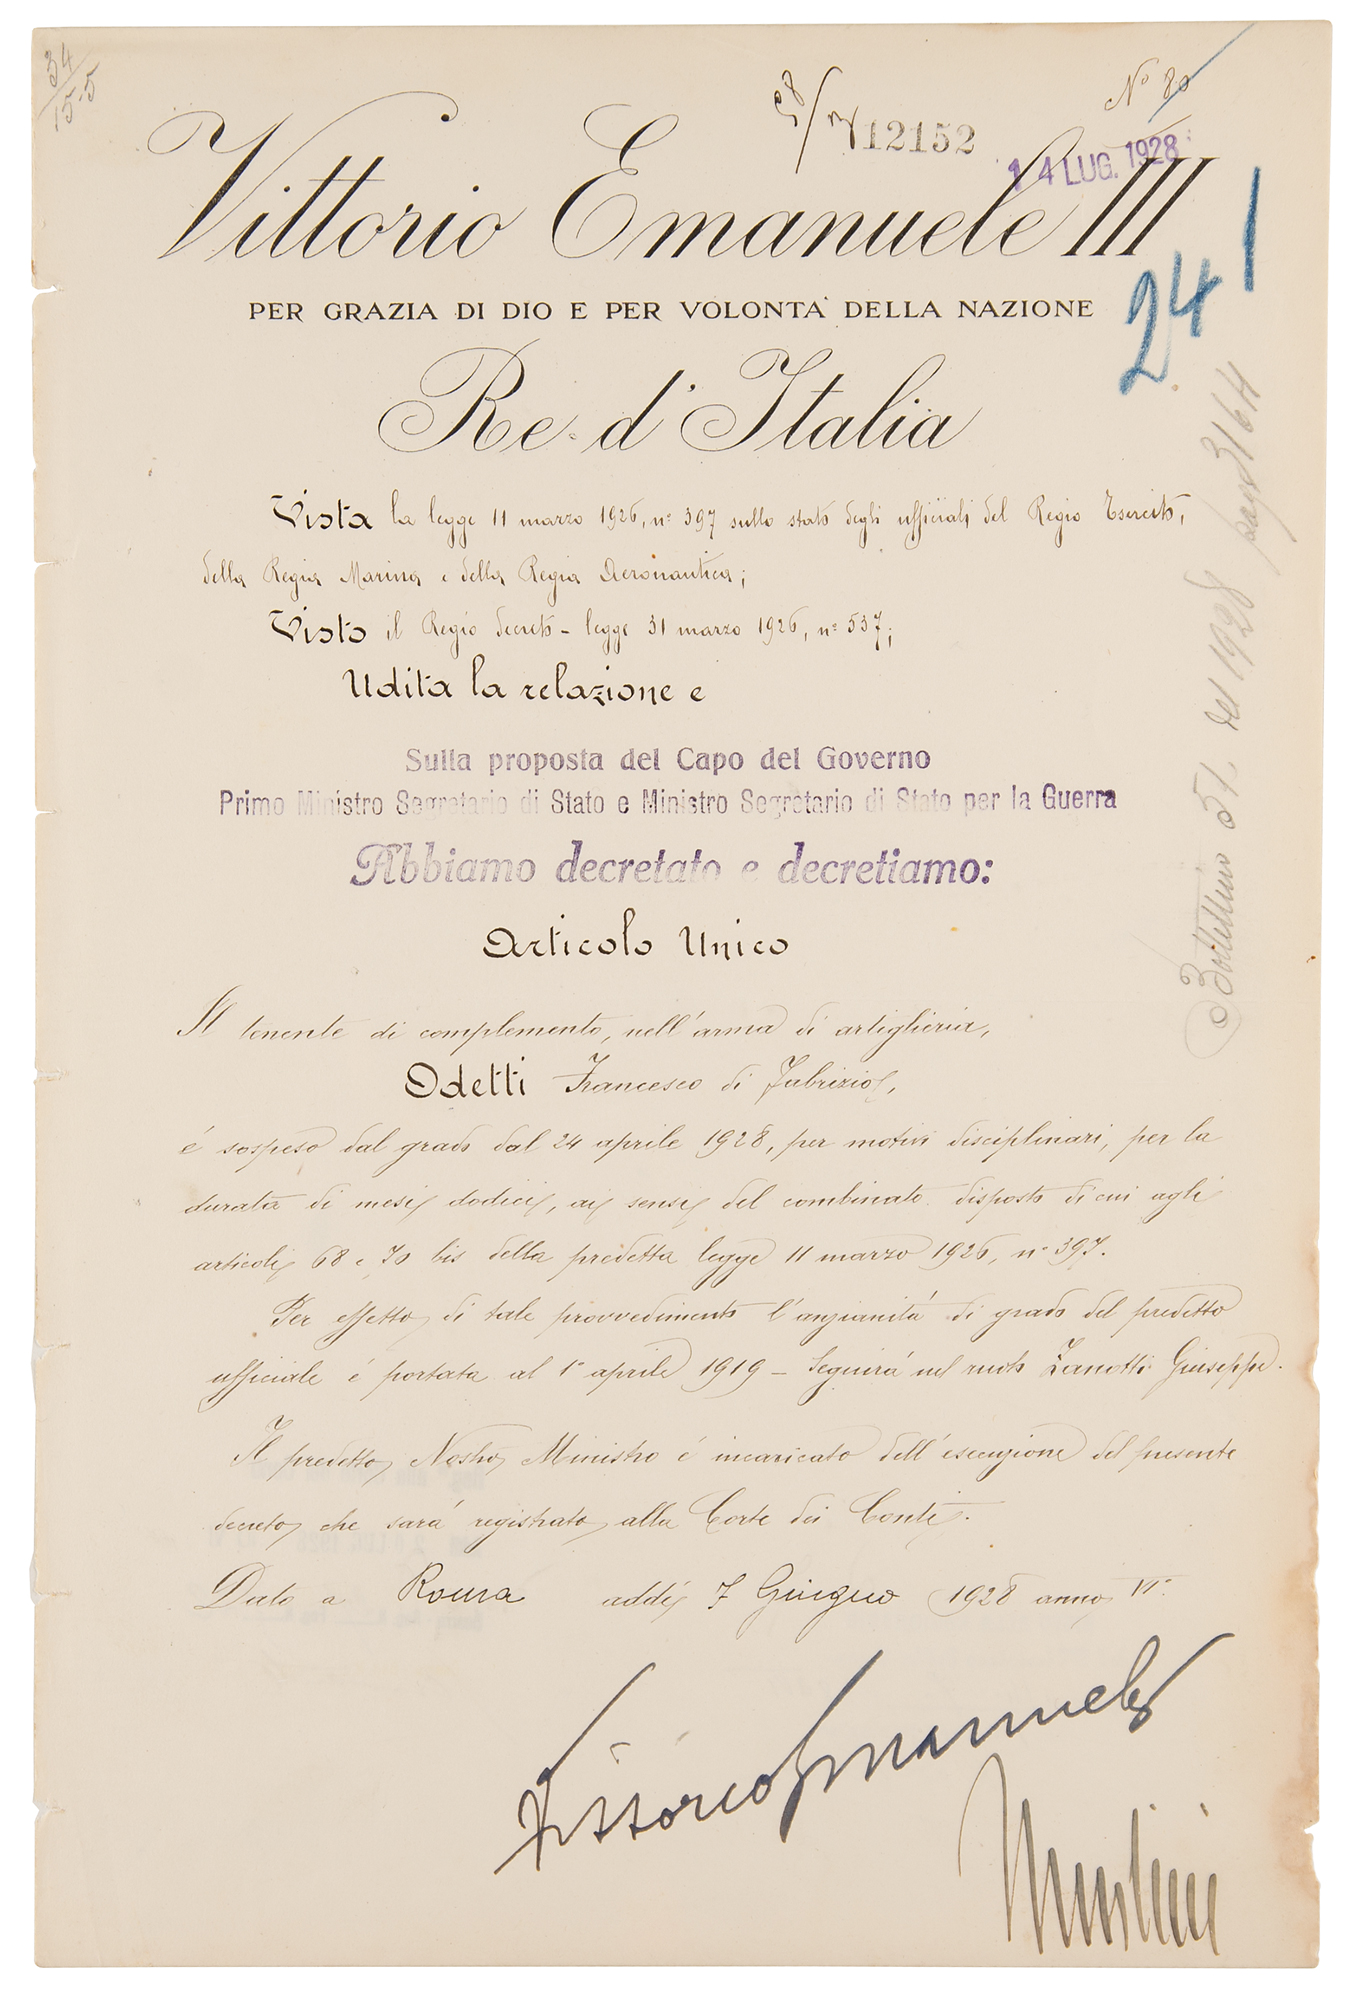 34
15-5
N° 80
12152
14 LUG. 1928
Vittorio Emanuele III
241
PER GRAZIA DI DIO E PER VOLONTA' DELLA NAZIONE
Re d'Italia
Vista la legge 11 marzo 1926, n° 397 sullo stato degli ufficiali del Regio Esercito,
della Regia Marina e della Regia Aeronautica;
Visto il Regio decreto-legge 31 marzo 1926, n° 537;
Udita la relazione e
Sulla proposta del Capo del Governo
Primo Ministro Segretario di Stato e Ministro Segretario di Stato per la Guerra
Abbiamo decretato e decretiamo:
Articolo Unico
Il tenente di complemento, nell'arma di artiglieria,
Odetti Francesco di Fabrizio,
è sospeso dal grado dal 24 aprile 1928, per motivi disciplinari, per la
durata di mesi dodici, ai sensi del combinato disposto di cui agli
articoli 68 e 70 bis della predetta legge 11 marzo 1926, n° 397.
Per effetto di tale provvedimento l'anzianità di grado del predetto
ufficiale è portata al 1° aprile 1919 - Seguirà nel ruolo Zanotti Giuseppe.
Il predetto Nostro Ministro è incaricato dell'esecuzione del presente
decreto che sarà registrato alla Corte dei Conti.
Dato a Roma addì 7 Giugno 1928 anno VI°
Vittorio Emanuele
Mussolini
Bollettino 51 del 1928 pag. 3164